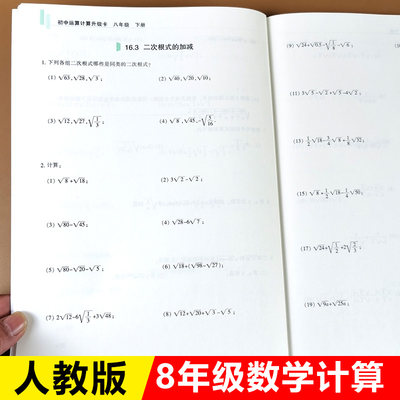 初中运算计算升级卡 八年级 下册
16.3 二次根式的加减
1. 下列各组二次根式哪些是同类的二次根式?
(1) √63, √28, √3; (2) √40, √20, √10;
(3) √12, √27, √(1/5); (4) √8, √45, -√(5/16)
2. 计算:
(1) √8+√18; (2) 3√2-√2;
(3) √80-√45; (4) √28-6√7;
(5) √80-√20-√5; (6) √18+(√98-√27);
(7) 2√12-6√(1/3)+3√48; (8) √12+√20+√3-√5;
(9) √24+√0.5-√(1/8)-√6;
(11) 3√5-√2+√5-4√2;
(13) 1/2√18-3/4√8+1/8√32;
(15) √8+1/2√18-1/4√50;
(17) √24+√(1/2)+2√(2/3);
(19) √9a+√25a;
人教版 8年级数学计算